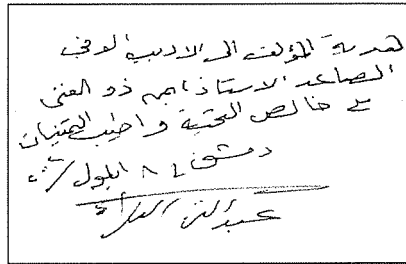 هدية المؤلف الى الاديب الوفي
الصاعد الاستاذ ذو الغنى
مع خالص التحية واطيب التمنيات
دمشق ٨ ايلول
عبد